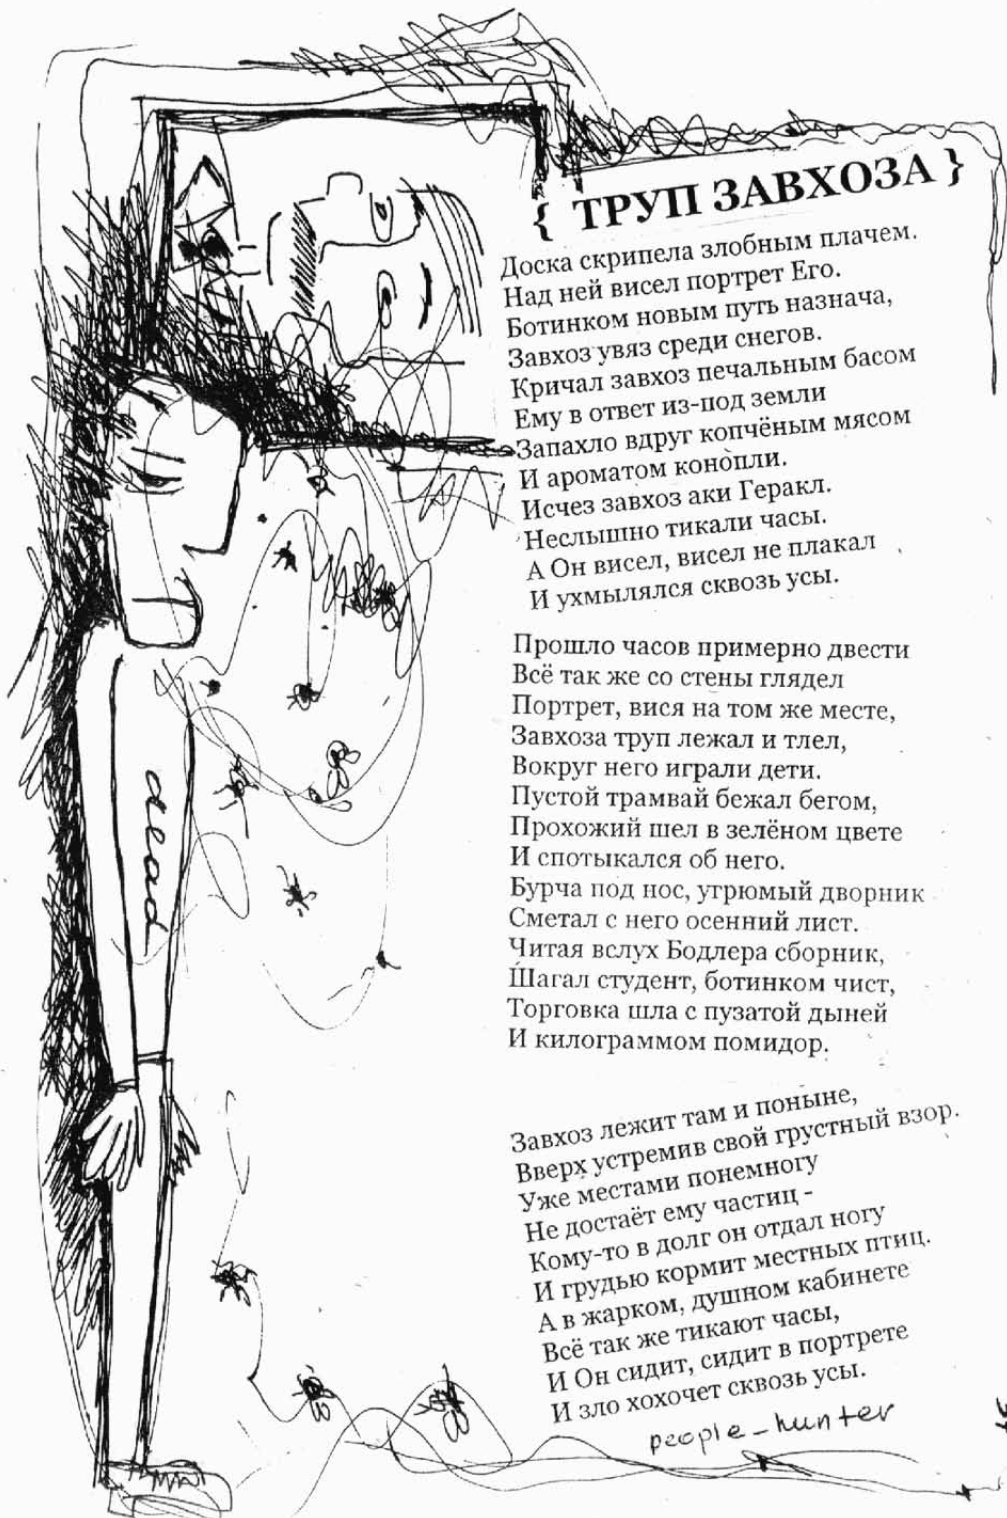 { ТРУП ЗАВХОЗА }
Доска скрипела злобным плачем.
Над ней висел портрет Его.
Ботинком новым путь назнача,
Завхоз увяз среди снегов.
Кричал завхоз печальным басом
Ему в ответ из-под земли
Запахло вдруг копчёным мясом
И ароматом конопли.
Исчез завхоз аки Геракл.
Неслышно тикали часы.
А Он висел, висел не плакал
И ухмылялся сквозь усы.
Прошло часов примерно двести
Всё так же со стены глядел
Портрет, вися на том же месте,
Завхоза труп лежал и тлел,
Вокруг него играли дети.
Пустой трамвай бежал бегом,
Прохожий шел в зелёном цвете
И спотыкался об него.
Бурча под нос, угрюмый дворник
Сметал с него осенний лист.
Читая вслух Бодлера сборник,
Шагал студент, ботинком чист,
Торговка шла с пузатой дыней
И килограммом помидор.
Завхоз лежит там и поныне,
Вверх устремив свой грустный взор.
Уже местами понемногу
Не достаёт ему частиц -
Кому-то в долг он отдал ногу
И грудью кормит местных птиц.
А в жарком, душном кабинете
Всё так же тикают часы,
И Он сидит, сидит в портрете
И зло хохочет сквозь усы.
people_hunter
dead